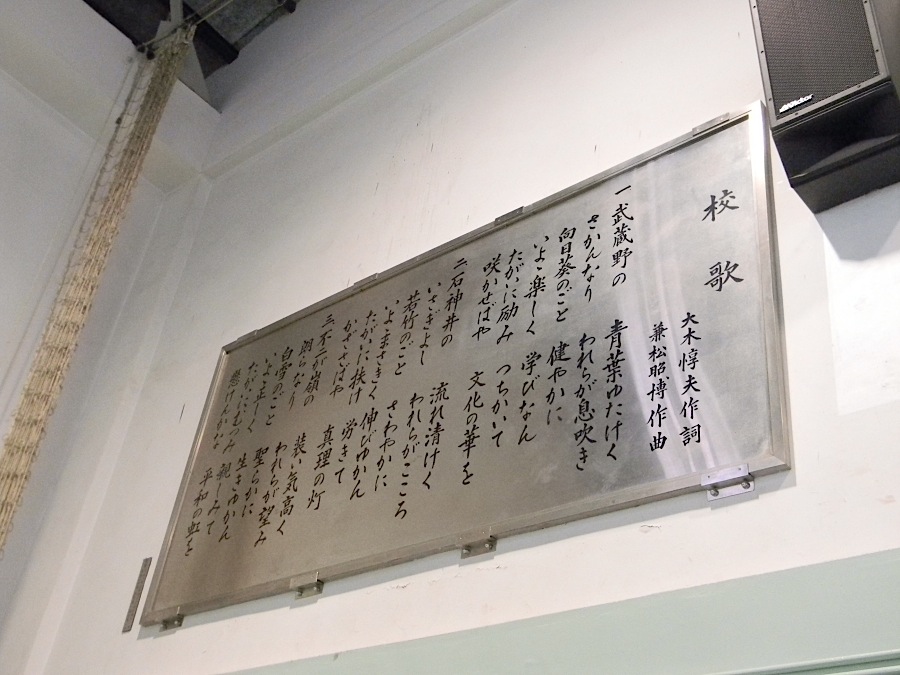 校歌
大木惇夫作詞
兼松昭博作曲
一 武蔵野の 青葉ゆたけく
さかんなり われらが息吹き
向日葵のごと 健やかに
いよゝ楽しく 学びなん
たがいに励み つちかいて
咲かせばや 文化の華を
二 石神井の 流れ清けく
いさぎよし われらがこころ
若竹のごと さわやかに
いよゝまさきく 伸びゆかん
たがいに扶け 労きて
かざさばや 真理の灯
三 不二が嶺の 装い気高く
朗らなり われらが望み
白雪のごと 聖らかに
いよゝ正しく 生きゆかん
たがいにむつみ 親しみて
懸けんかな 平和の虹を
Victor